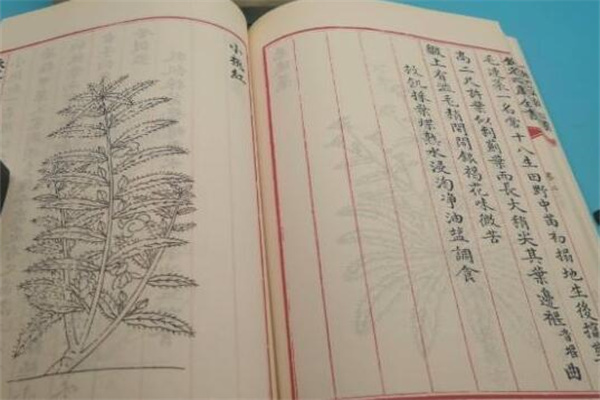 欽定四庫全書
毛連菜一名常十八生田野中苗初搨地生後攛葶
高二尺許葉似刺薊葉而長大稍尖其葉邊褗曲
皺上有澁毛梢間開銀褐花味微苦
救飢採葉煠熟水浸淘淨油鹽調食
小桃紅